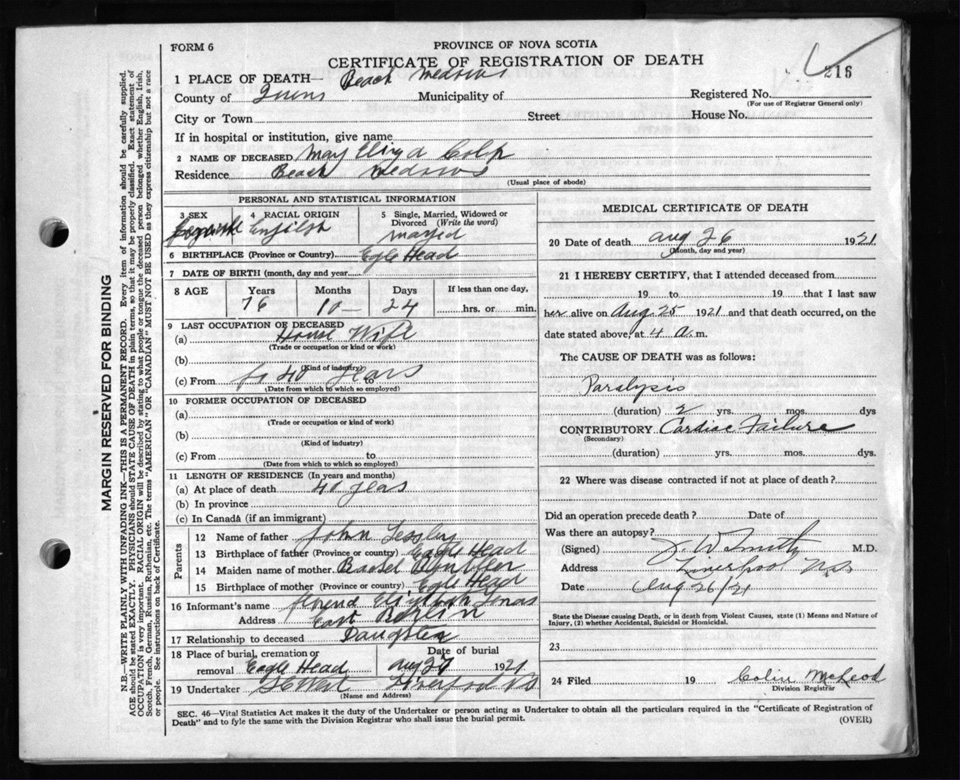 FORM 6
PROVINCE OF NOVA SCOTIA
CERTIFICATE OF REGISTRATION OF DEATH
216
1 PLACE OF DEATH— Beach Medows
County of Municipality of Registered No.
(For use of Registrar General only)
City or Town Street House No.
If in hospital or institution, give name
2 NAME OF DECEASED May Colp
Residence Beach Medows
(Usual place of abode)
PERSONAL AND STATISTICAL INFORMATION
3 SEX 4 RACIAL ORIGIN 5 Single, Married, Widowed or Divorced (Write the word)
English
6 BIRTHPLACE (Province or Country) Egle Head
7 DATE OF BIRTH (month, day and year)
8 AGE Years Months Days If less than one day,
76 10 24 hrs. or min.
9 LAST OCCUPATION OF DECEASED
(a) House Wife
(Trade or occupation or kind or work)
(b)
(Kind of industry)
(c) From 40 years to
(Date from which to which so employed)
10 FORMER OCCUPATION OF DECEASED
(a)
(Trade or occupation or kind of work)
(b)
(Kind of industry)
(c) From to
(Date from which to which so employed)
11 LENGTH OF RESIDENCE (In years and months)
(a) At place of death 40 years
(b) In province
(c) In Canada (if an immigrant)
Parents
12 Name of father John
13 Birthplace of father (Province or country) Eagle Head
14 Maiden name of mother
15 Birthplace of mother (Province or country) Egle Head
16 Informant's name
Address East
17 Relationship to deceased Daughter
18 Place of burial, cremation or removal Eagle Head
Date of burial Aug 27 1921
19 Undertaker West Liverpool N.S
(Name and Address)
MEDICAL CERTIFICATE OF DEATH
20 Date of death Aug 26 1921
(Month, day and year)
21 I HEREBY CERTIFY, that I attended deceased from
19 to 19 that I last saw
her alive on Aug. 25 1921 and that death occurred, on the
date stated above, at 4 a. m.
The CAUSE OF DEATH was as follows:
Paralysis
(duration) 2 yrs. mos. dys
CONTRIBUTORY Cardiac Failure
(Secondary)
(duration) yrs. mos. dys.
22 Where was disease contracted if not at place of death?
Did an operation precede death? Date of
Was there an autopsy?
(Signed) J. W Smith M.D.
Address Liverpool N.S
Date Aug 26/21
State the Disease causing Death, or in death from Violent Causes, state (1) Means and Nature of Injury, (2) whether Accidental, Suicidal or Homicidal.
23
24 Filed 19 Colin McLeod
Division Registrar
SEC. 46—Vital Statistics Act makes it the duty of the Undertaker or person acting as Undertaker to obtain all the particulars required in the "Certificate of Registration of
Death" and to fyle the same with the Division Registrar who shall issue the burial permit.
(OVER)
MARGIN RESERVED FOR BINDING
N.B.—WRITE PLAINLY WITH UNFADING INK—THIS IS A PERMANENT RECORD. Every item of information should be carefully supplied.
AGE should be stated EXACTLY. PHYSICIANS should STATE CAUSE OF DEATH in plain terms, so that it may be properly classified. Exact statement of
OCCUPATION is very important. RACIAL ORIGIN will be described by stating to what people or tongue the deceased person belonged whether English, Irish,
Scotch, French, German, Russian, Ruthenian, etc. The terms "AMERICAN" OR "CANADIAN" MUST NOT BE USED as they express citizenship but not a race
or people. See instructions on back of Certificate.